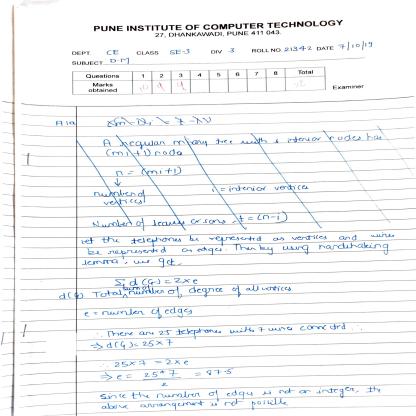 PUNE INSTITUTE OF COMPUTER TECHNOLOGY
27, DHANKAWADI, PUNE 411 043.
DEPT. CE CLASS SE-3 DIV 3 ROLL NO. 21342 DATE 7/10/19
SUBJECT D.M
Questions 1 2 3 4 5 6 7 8 Total
Marks obtained
Examiner
A regular m-ary tree with i interior nodes has
(mi+1) node
n = (mi+1)
number of vertices
i = interior vertices
Number of leaves or sons, t = (n-i)
let the telephones be represented as vertices and wires
be represented as edges. Then by using handshaking
lemma, we get,
Σ d(G) = 2×e
d(G) Total number of degree of all vertices
e = number of edges
There are 25 telephones with 7 wires connected
⇒ d(G) = 25×7
25×7 = 2×e
⇒ e = 25*7 / 2 = 87.5
Since the number of edges is not an integer, the
above arrangement is not possible